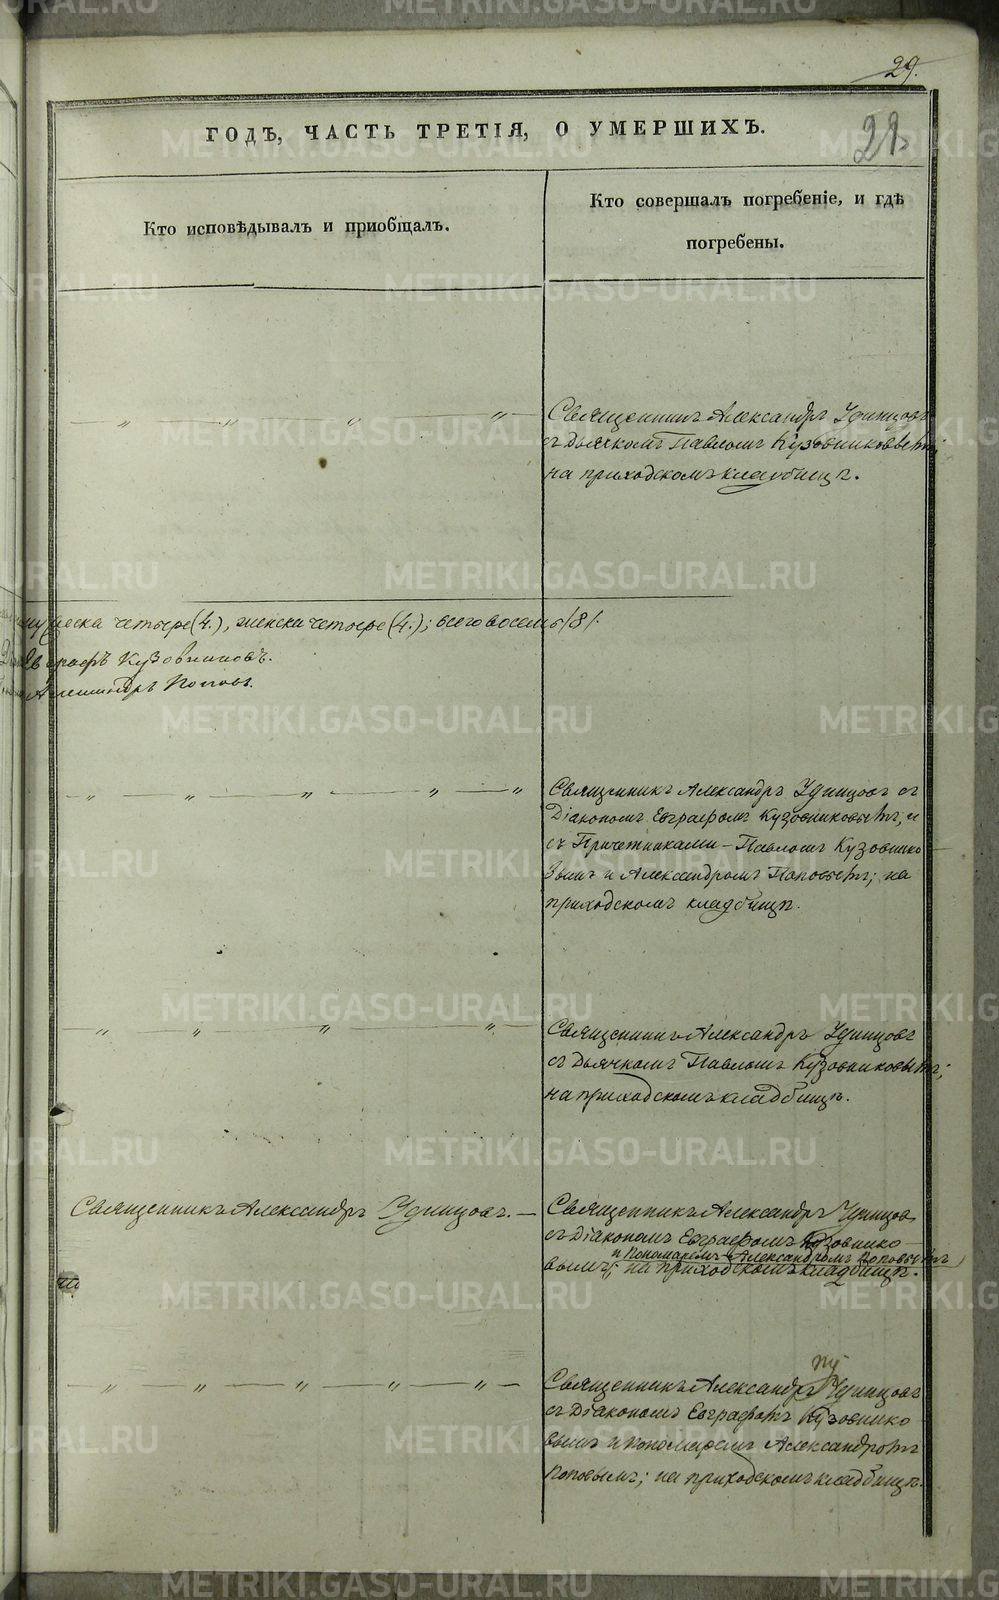 29.
ГОДЪ, ЧАСТЬ ТРЕТІЯ, О УМЕРШИХЪ.
Кто исповѣдывалъ и приобщалъ.
Кто совершалъ погребеніе, и гдѣ
погребены.
Священникъ Александръ Удинцовъ
съ Дьячкомъ Павломъ Кузовниковымъ;
на приходскомъ кладбищѣ.
мужеска четыре (4.), женска четыре (4.); всего восемь /8/.
Евграфъ Кузовниковъ.
Александръ Поповъ.
Священникъ Александръ Удинцовъ съ
Діакономъ Евграфомъ Кузовниковымъ, и
съ Причетниками – Павломъ Кузовнико-
вымъ и Александромъ Поповымъ; на
приходскомъ кладбищѣ.
Священникъ Александръ Удинцовъ
съ Дьячкомъ Павломъ Кузовниковымъ;
на приходскомъ кладбищѣ.
Священникъ Александръ Удинцовъ. –
Священникъ Александръ Удинцовъ
съ Діакономъ Евграфомъ Кузовнико-
и Пономаремъ Александромъ Поповымъ
вымъ; на приходскомъ кладбищѣ.
Священникъ Александръ Удинцовъ
съ Діакономъ Евграфомъ Кузовнико
вымъ и Пономаремъ Александромъ
Поповымъ; на приходскомъ кладбищѣ.
METRIKI.GASO-URAL.RU